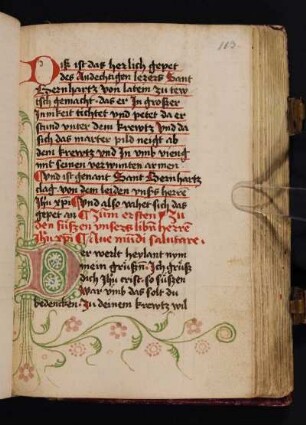 113
Diß ist das herlich gepet
des Andechtigen lerers Sant
Bernhartz von latein zu tew
tsch gemacht · das er In großer
Innikeit tichtet und petet da er
stund unter dem krewtz Und da
sich das marter pild neigt ab
dem krewtz und In umb vieng
mit seinen verwunten armen
Und ist genant Sant Bernhartz
clag von dem leiden unßs herre
Ihu xpi Und also vahet sich das
gepet an Zum ersten Zu
den füssen unsers libn herre
Ihu xpi Aue mūdi salutare ·
Der werlt heylant nym
mein grüssen · Ich grüß
dich Ihu crist · so süssen
War umb das solt du
bedencken · Zu deinem krewtz wil